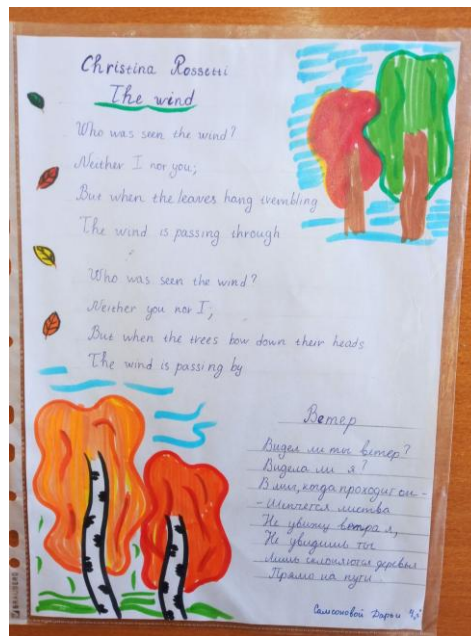 Christina Rossetti
The wind
Who was seen the wind?
Neither I nor you;
But when the leaves hang trembling
The wind is passing through
Who was seen the wind?
Neither you nor I;
But when the trees bow down their heads
The wind is passing by
Ветер
Видел ли ты ветер?
Видела ли я?
В миг, когда проходит он -
- Шепчется листва
Не увижу ветра я,
Не увидишь ты
Лишь склоняются деревья
Прямо на пути
Самсоновой Дарьи